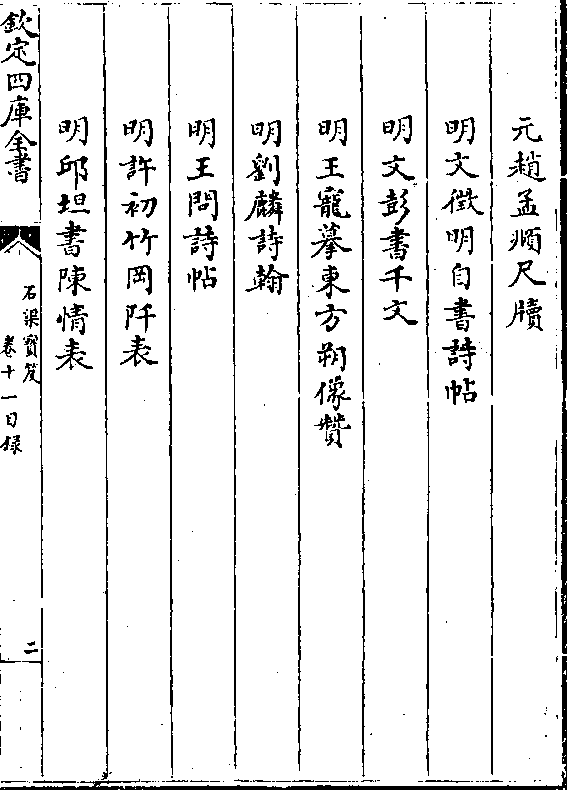 元趙孟頫尺牘
明文徴明自書詩帖
明文彭書千文
明王寵摹東方朔像贊
明劉麟詩翰
明王問詩帖
明許初竹岡阡表
明邱坦書陳情表
欽定四庫全書
石渠寶笈
卷十一目録
二